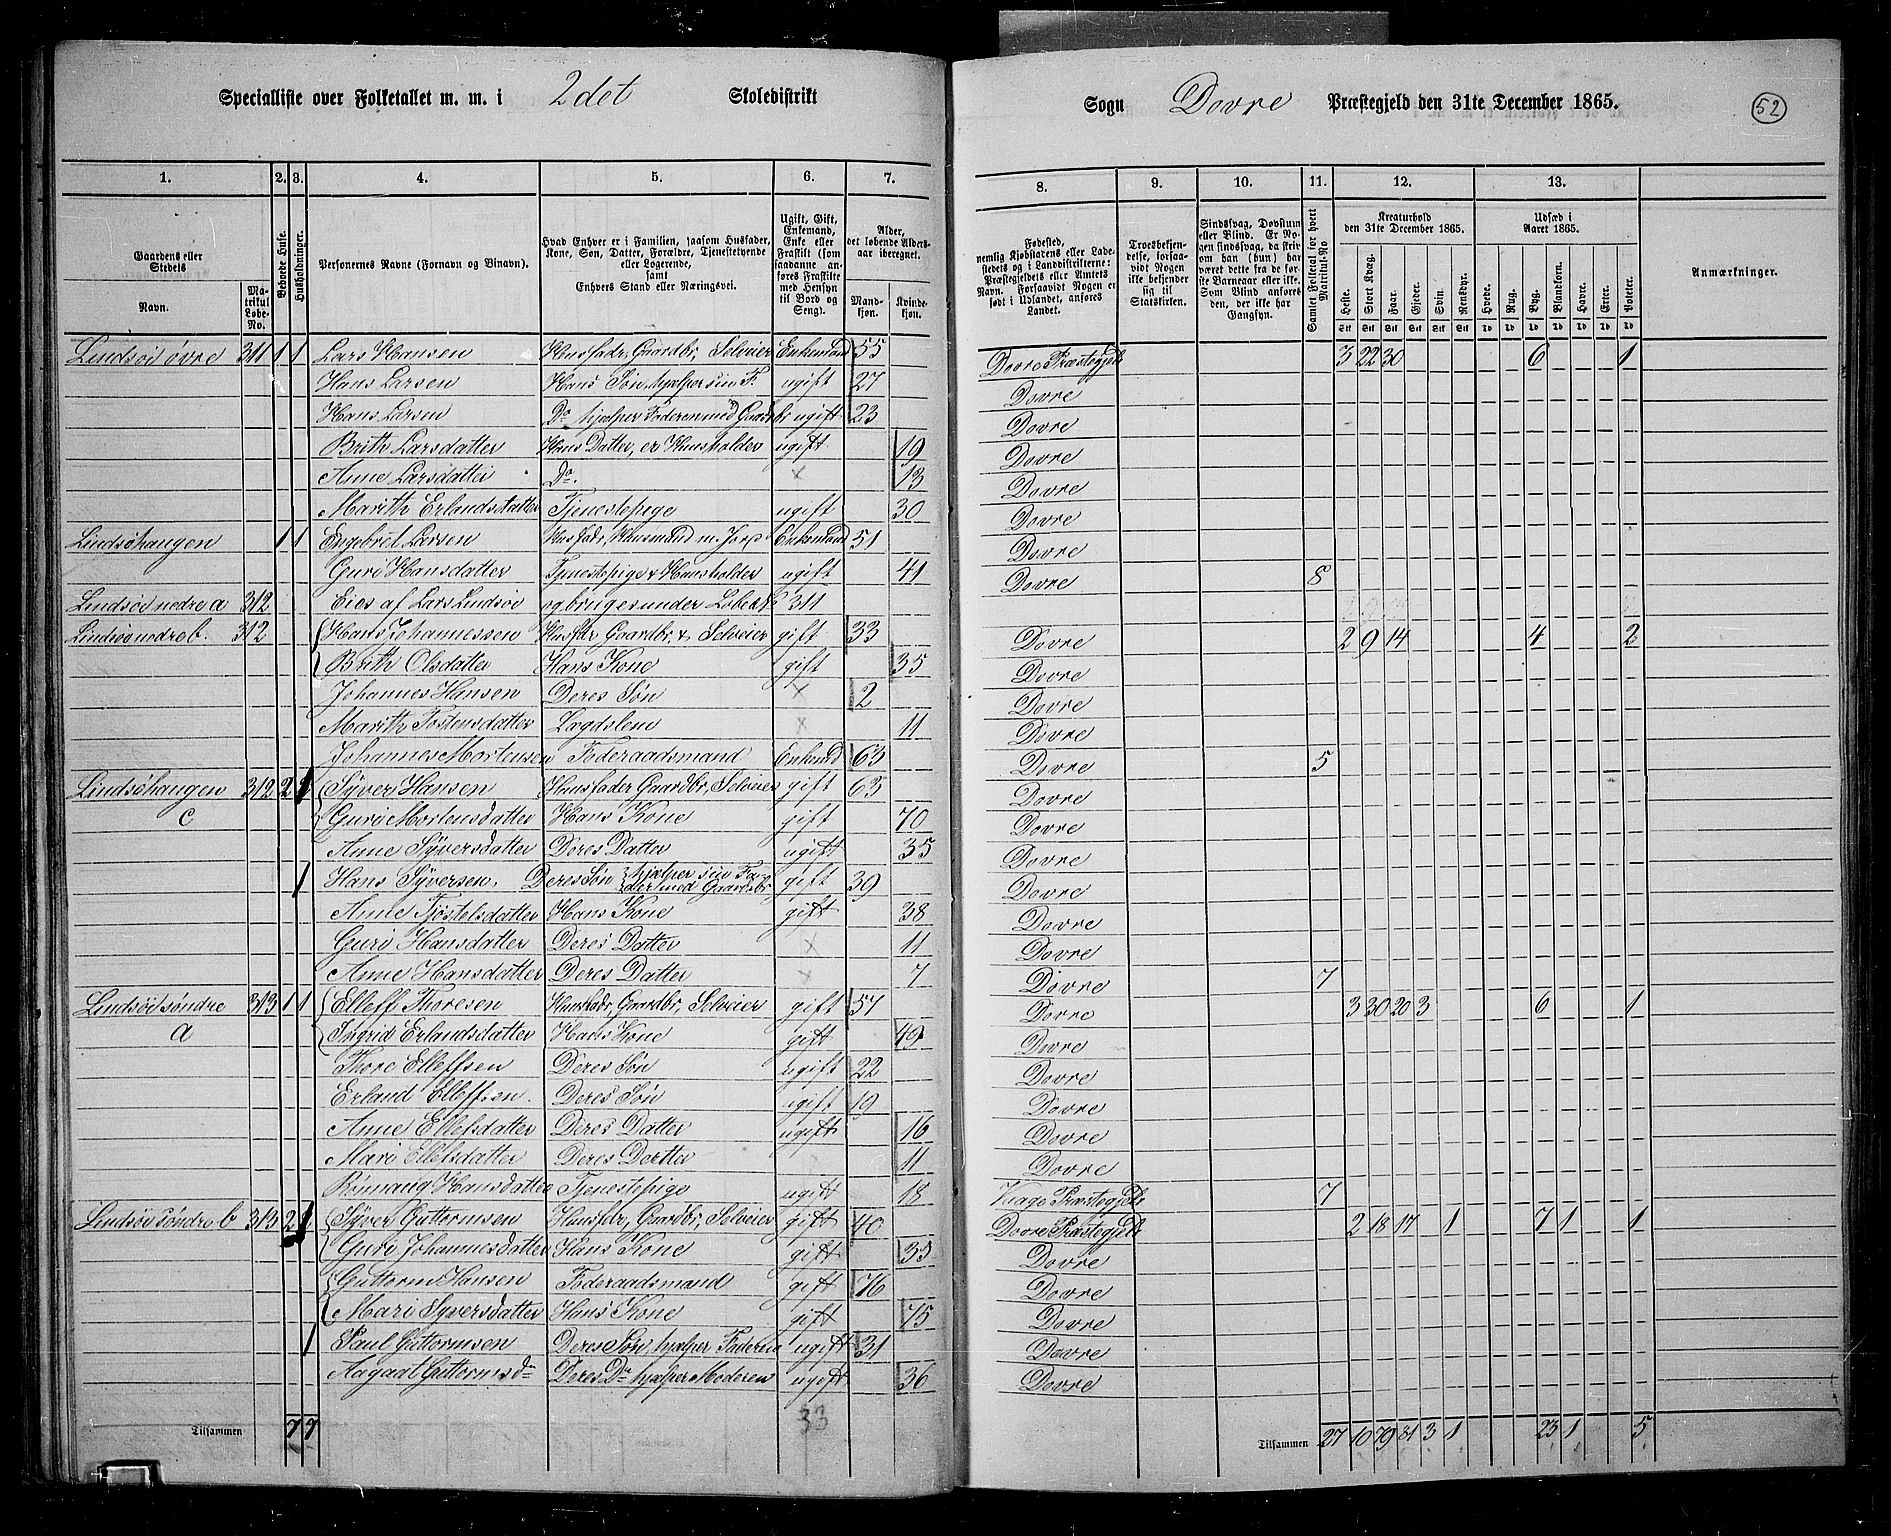 Specialliste over Folketallet m. m. i 2det Skoledistrikt
Sogn Dovre Præstegjeld den 31te December 1865. 52
1. 2. 3. 4. 5. 6. 7. 8. 9. 10. 11. 12. 13.
Gaardens eller Stedets Navn. Matrikul Løbe-No. Beboede Huse. Husholdninger. Personernes Navne (Fornavn og Tilnavn). Hvad Enhver er i Familien, saasom Husfader, Kone, Søn, Datter, Forældre, Tjenestetyende eller Logerende, samt Enhvers Stand eller Næringsvei. Ugift, Gift, Enkemand, Enke eller Fraskilt (som saadanne anføres Fraskilte med Hensyn til Bord og Seng). Alder, det løbende Aldersaar iberegnet. Mandkjøn. Kvindekjøn.
Fødested, nemlig Kjøbstadens eller Ladestedets og i Landdistrikterne: Præstegjeldets eller Amtets Navn. Forsaavidt Nogen er født i Udlandet, anføres Landet. Troesbekjendelse, forsaavidt Nogen ikke bekjender sig til Statskirken. Sindssvag, Døvstum eller Blind. Er Nogen sindssvag, da skrives om han (hun) har været dette fra de første Barneaar eller ikke. Som Blind anføres den, der ikke har Gangsyn. Samlet Folketal for hvert Matrikul-No. Kreaturhold den 31te December 1865. Heste. Stort Kvæg. Faar. Gjeder. Svin. Rensdyr. Udsæd i Aaret 1865. Hvede. Rug. Byg. Blandkorn. Havre. Erter. Poteter. Anmærkninger.
Lindsöe övre 311 1 1 Lars Hansen Husfadr, Gaardbr, Selveier Enkemand 55 Dovre Præstegjeld 3 22 30 6 1
Hans Larsen Hans Søn, hjælper sin F. ugift 27 Dovre
Hans Larsen Do hjælper Faderen med Gaardsbr ugift 23 Dovre
Brith Larsdatter Hans Datter, er Husholder ugift 19 Dovre
Anne Larsdatter Do. x 13 Dovre
Marith Erlandsdatter Tjenestepige ugift 30 Dovre
Lindsöhaugen 1 1 Engebret Larsen Husfadr, Husmand m. Jord Enkemand 51 Dovre
Guri Hansdatter Tjenestepige & Husholder ugift 41 Dovre 8
Lindsöe nedre a 312 Eies af Lars Lindsöe og bruges under Løbe No 311
Lindsöe nedre b. 312 Hans Johannessen Husfdr, Gaardbr. & Selveier gift 33 Dovre 2 9 14 4 2
Brith Olsdatter Hans Kone gift 35 Dovre
Johannes Hansen Deres Søn x 2 Dovre
Marith Tostensdatter Lægdslem x 11 Dovre
Johannes Mortensen Føderaadsmand Enkemd 63 Dovre 5
Lindsöhaugen 312 2 1 Syver Hansen Husfader Gaardbr, Selveier gift 63 Dovre
c Guri Mortensdatter Hans Kone gift 70 Dovre
Anne Syversdatter Deres Datter ugift 35 Dovre
1 Hans Syversen, Deres Søn hjælper sin Fader med Gaardsbr, gift 39 Dovre
Anne Tjöstelsdatter Hans Kone gift 38 Dovre
Guri Hansdatter Deres Datter x 11 Dovre
Anne Hansdatter Deres Datter x 7 Dovre 7
Lindsöe söndre 313 1 1 Elleff Thoresen Husfadr, Gaardbr, Selveier gift 57 Dovre 3 30 20 3 6 1
a Ingrid Erlandsdatter Hans Kone gift 49 Dovre
Thore Elleffsen Deres Søn ugift 22 Dovre
Erland Elleffsen. Deres Søn ugift 19 Dovre
Anne Ellefsdatter Deres Datter ugift 16 Dovre
Mari Ellefsdatter Deres Datter 11 Dovre
Rønnaug Hansdatter Tjenestepige ugift 18 Vaage Præstegjeld 7
Lindsöe söndre b 313 2 1 Syver Guttormsen Husfadr, Gaardbr, Selveier gift 40 Dovre Præstegjeld 2 18 17 1 7 1 1
Guri Johannesdatter Hans Kone gift 35 Dovre
Guttorm Hansen Føderaadsmand gift 76 Dovre
Mari Syversdatter Hans Kone gift 75 Dovre
1 Paul Guttormsen Deres Søn, hjælper Faderen ugift 31 Dovre
Aagaat Guttormsdr Deres Dr hjælper Moderen ugift 36 Dovre
Tilsammen 7 7 33 Tilsammen 27 10 79 81 3 1 23 1 5